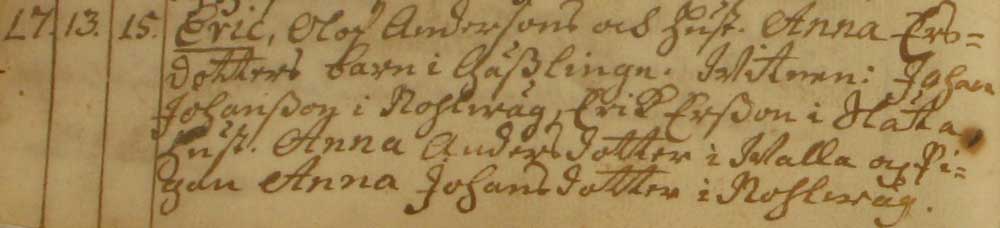 17. 13. 15. Eric, Olof Andersons och Hust. Anna Ers=
dotters barn i Gäßlinge. Witnen: Johan
Johanßon i Rohlwäg, Erik Erßon i Slätta,
Hust. Anna Andersdotter i Walla och Pi=
gan Anna Johansdotter i Rohlwäg.